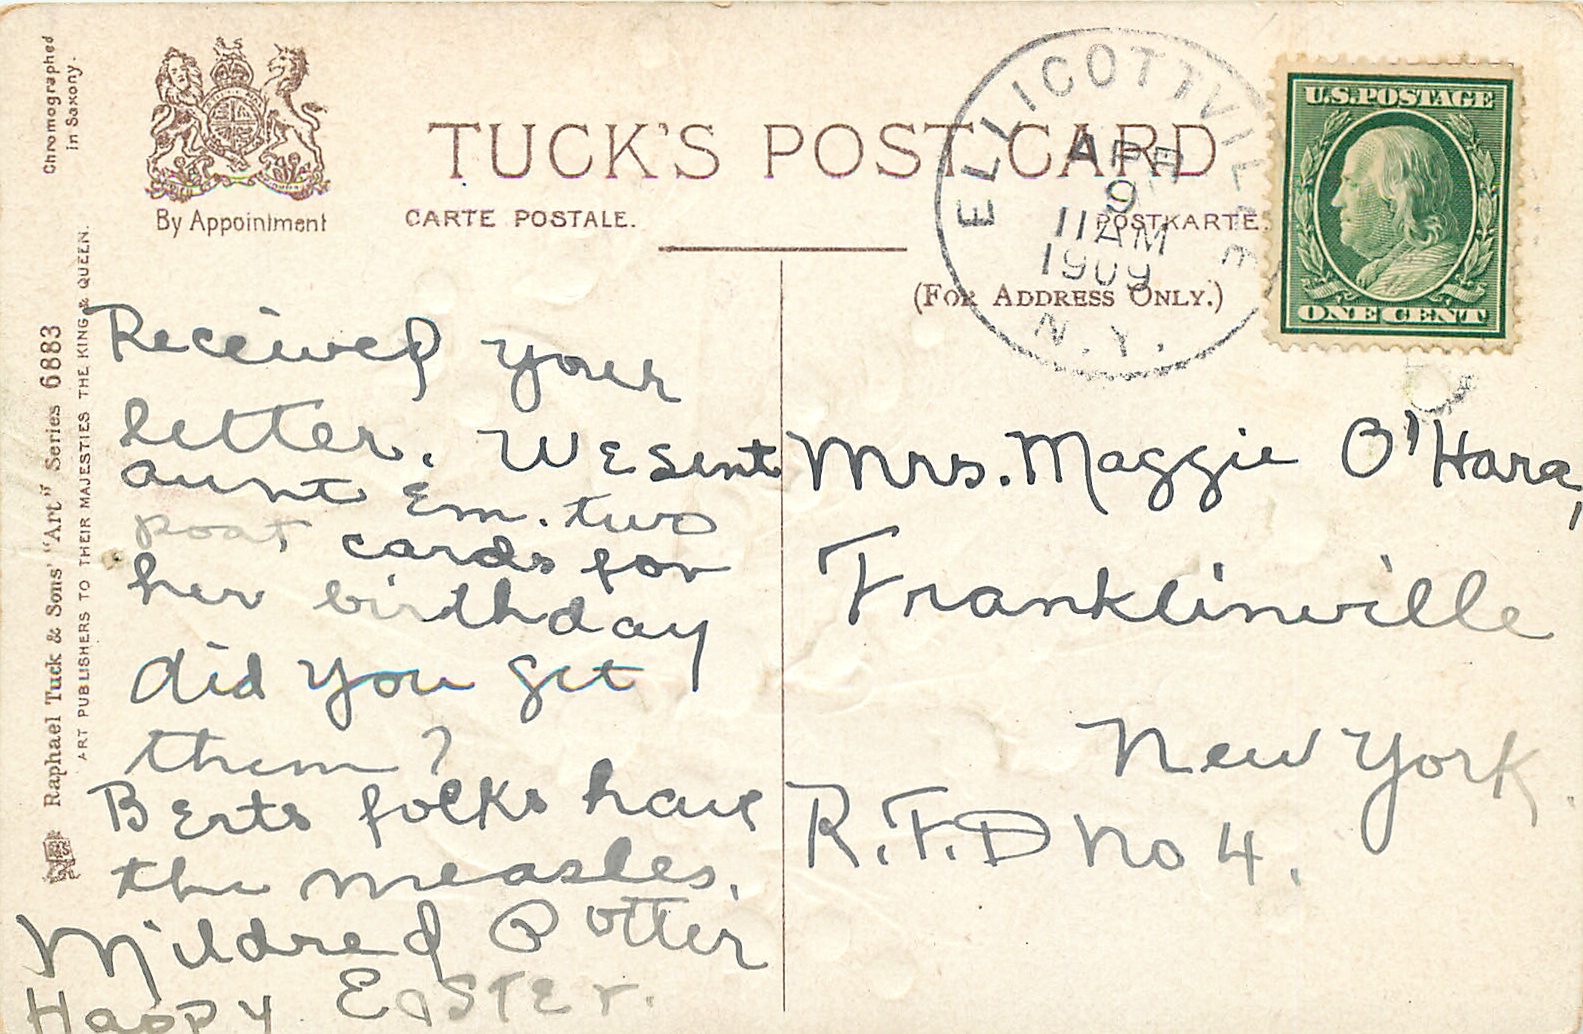 Chromographed
in Saxony.
By Appointment
TUCK'S POST CARD
CARTE POSTALE.
POSTKARTE.
(FOR ADDRESS ONLY.)
ELLICOTTVILLE
APR
9
11 AM
1909
N.Y.
U.S.POSTAGE
ONE CENT
Raphael Tuck & Sons' "Art" Series 6883
ART PUBLISHERS TO THEIR MAJESTIES THE KING & QUEEN.
Received your
letter. We sent
aunt Em. two
post cards for
her birthday
did you get
them?
Berts folks have
the measles.
Mildred Potter
Happy Easter.
Mrs. Maggie O'Hara,
Franklinville
New York.
R.F.D No 4.